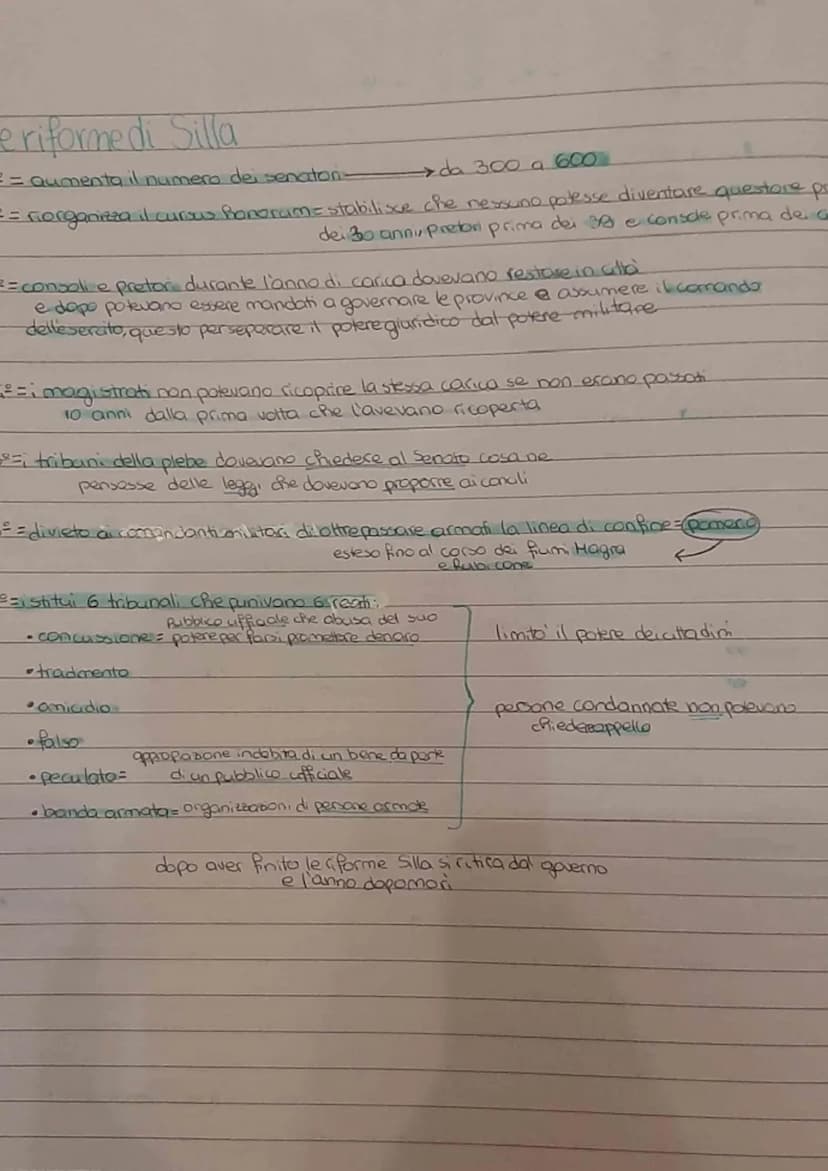 e riforme di Silla
= aumenta il numero dei senatori → da 300 a 600
= riorganizza il cursus honorum = stabilisce che nessuno potesse diventare questore
dei 30 anni, pretori prima dei 39 e console prima dei
= consoli e pretori durante l'anno di carica dovevano restare in città
e dopo potevano essere mandati a governare le province e assumere il comando
dell'esercito, questo per separare il potere giuridico dal potere militare
º = i magistrati non potevano ricoprire la stessa carica se non erano passati
10 anni dalla prima volta che l'avevano ricoperta
º = i tribuni della plebe dovevano chiedere al Senato cosa ne
pensasse delle leggi che dovevano proporre ai conoli
º = divieto ai comandanti militari di oltrepassare armati la linea di confine = pomerio
esteso fino al corso dei fiumi Magra
e Rubicone
º = istituì 6 tribunali che punivano 6 reati:
pubblico ufficiale che abusa del suo
• concussione = potere per farsi promettere denaro
limitò il potere dei cittadini
• tradimento
• omicidio
persone condannate non potevano
chiedere appello
• falso
appropazione indebita di un bene da parte
• peculato = di un pubblico ufficiale
• banda armata = organizzazioni di persone armate
dopo aver finito le riforme Silla si ritira dal governo
e l'anno dopo morì